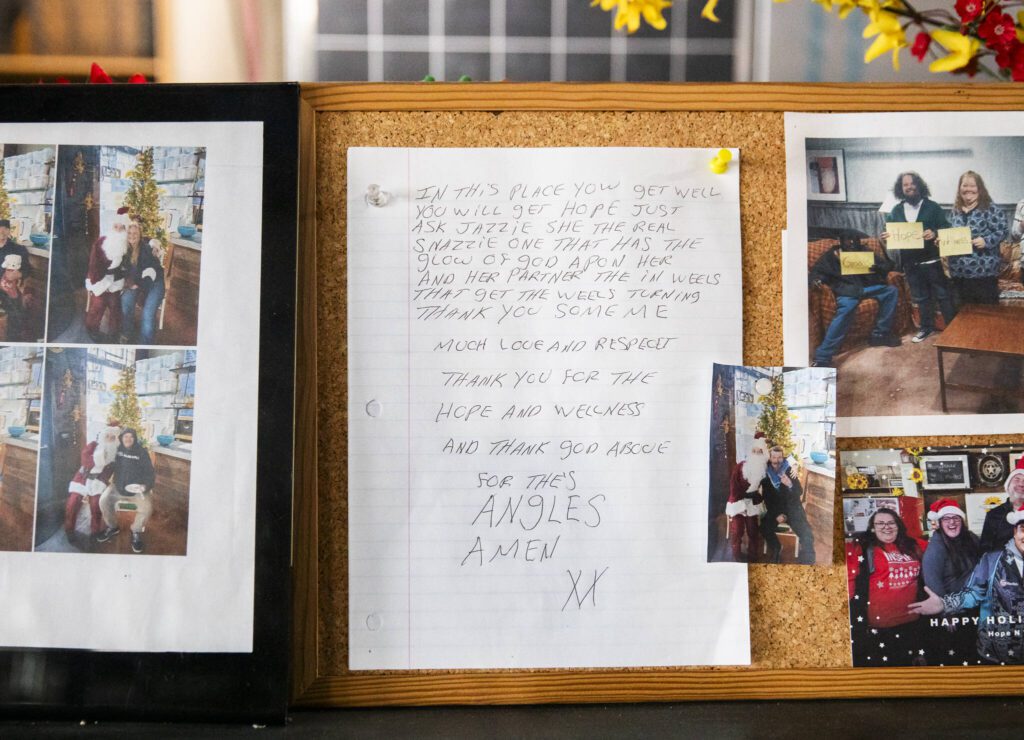 IN THIS PLACE YOU GET WELL
YOU WILL GET HOPE JUST
ASK JAZZIE SHE THE REAL
SNAZZIE ONE THAT HAS THE
GLOW OF GOD APON HER
AND HER PARTNER THE IN WEELS
THAT GET THE WEELS TURNING
THANK YOU SOME ME
MUCH LOVE AND RESPECET
THANK YOU FOR THE
HOPE AND WELLNESS
AND THANK GOD ABOVE
FOR THE'S
ANGLES
AMEN
XX
Hope
HAPPY HOLI
Hope N